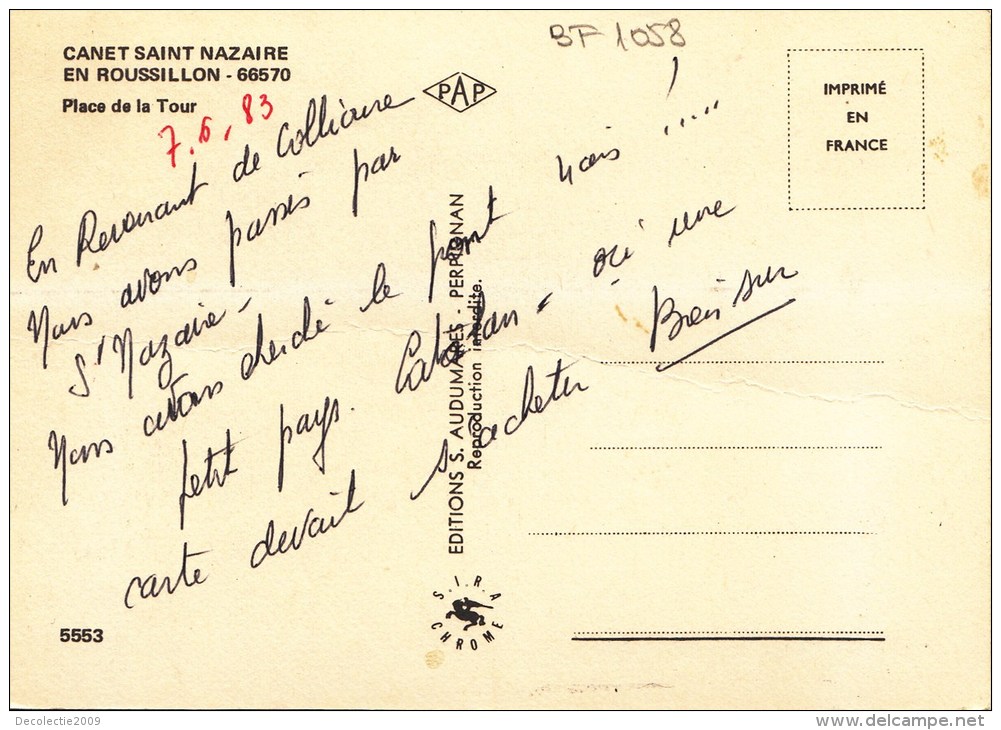 CANET SAINT NAZAIRE
EN ROUSSILLON - 66570
Place de la Tour
7.6.83
BF 1058
PAP
IMPRIMÉ
EN
FRANCE
En Revenant de Collioure
Nous avons passés par
St Nazaire -
Nous avons cherché le pont mais ..... !
petit pays. Catalan - où une
carte devait s'acheter Bien sur
EDITIONS S. AUDUMARES - PERPIGNAN
Reproduction interdite.
S.I.R.A
CHROME
5553
Decolectie2009
delcampe.net